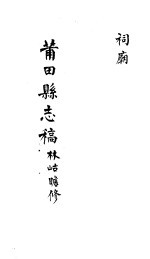 祠廟
莆田縣志稿
林岵瞻修